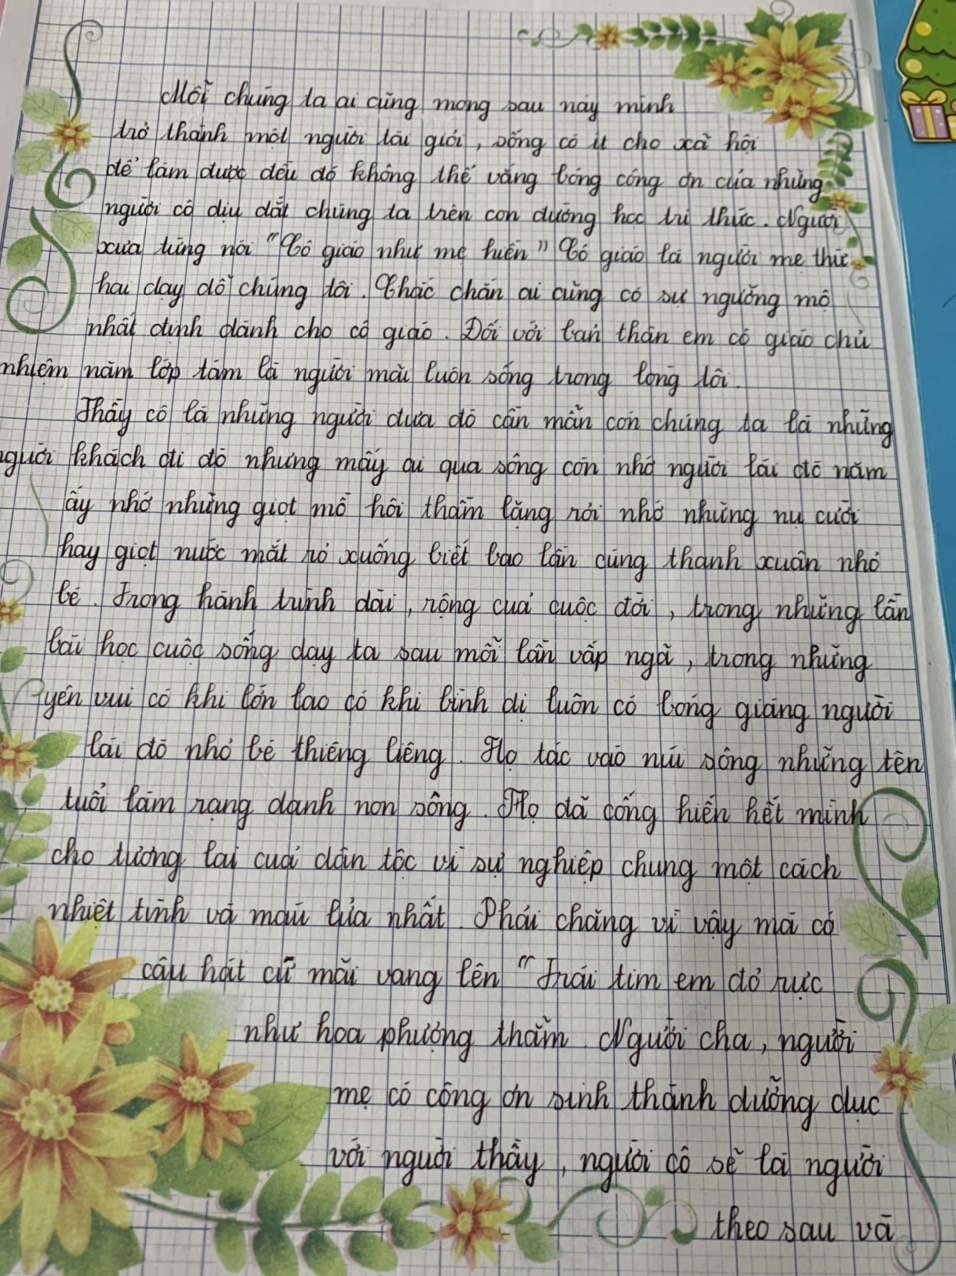 Mỗi chúng ta ai cũng mong sau này mình
trở thành một người tài giỏi, sống có ít cho xã hội
để làm được đều đó không thể vắng bóng công ơn của những
người cô dìu dắt chúng ta trên con đường học tri thức. Người
xưa từng nói "Cô giáo như mẹ hiền" Cô giáo là người mẹ thứ
hai dạy dỗ chúng tôi. Chắc chắn ai cũng có sự ngưỡng mộ
nhất định dành cho cô giáo. Đối với bản thân em cô giáo chủ
nhiệm năm lớp tám là người mãi luôn sống trong lòng tôi.
Thầy cô là những người đưa đò cần mẫn còn chúng ta là những
người khách đi đò nhưng mấy ai qua sông còn nhớ người lái đò năm
ấy nhớ những giọt mồ hôi thầm lặng rơi nhớ những nụ cười
hay giọt nước mắt rơ xuống biết bao lần cùng thanh xuân nhỏ
bé. Trong hành trình dài, rộng của cuộc đời, trong những lần
bài học cuộc sống dạy ta sau mỗi lần vấp ngã, trong những
yên vui có khi lớn lao có khi bình dị luôn có bóng giáng người
lái đò nhỏ bé thiêng liêng. Họ tác vào núi sông những tên
tuổi làm rạng danh non sông. Họ đã cống hiến hết mình
cho tương lai của dân tộc vì sự nghiệp chung một cách
nhiệt tình và máu lửa nhất. Phải chăng vì vậy mà có
câu hát cứ mãi vang lên "Trái tim em đỏ rực
như hoa phượng thắm. Người cha, người
mẹ có công ơn sinh thành dưỡng dục
với người thầy, người cô sẽ là người
theo sau và